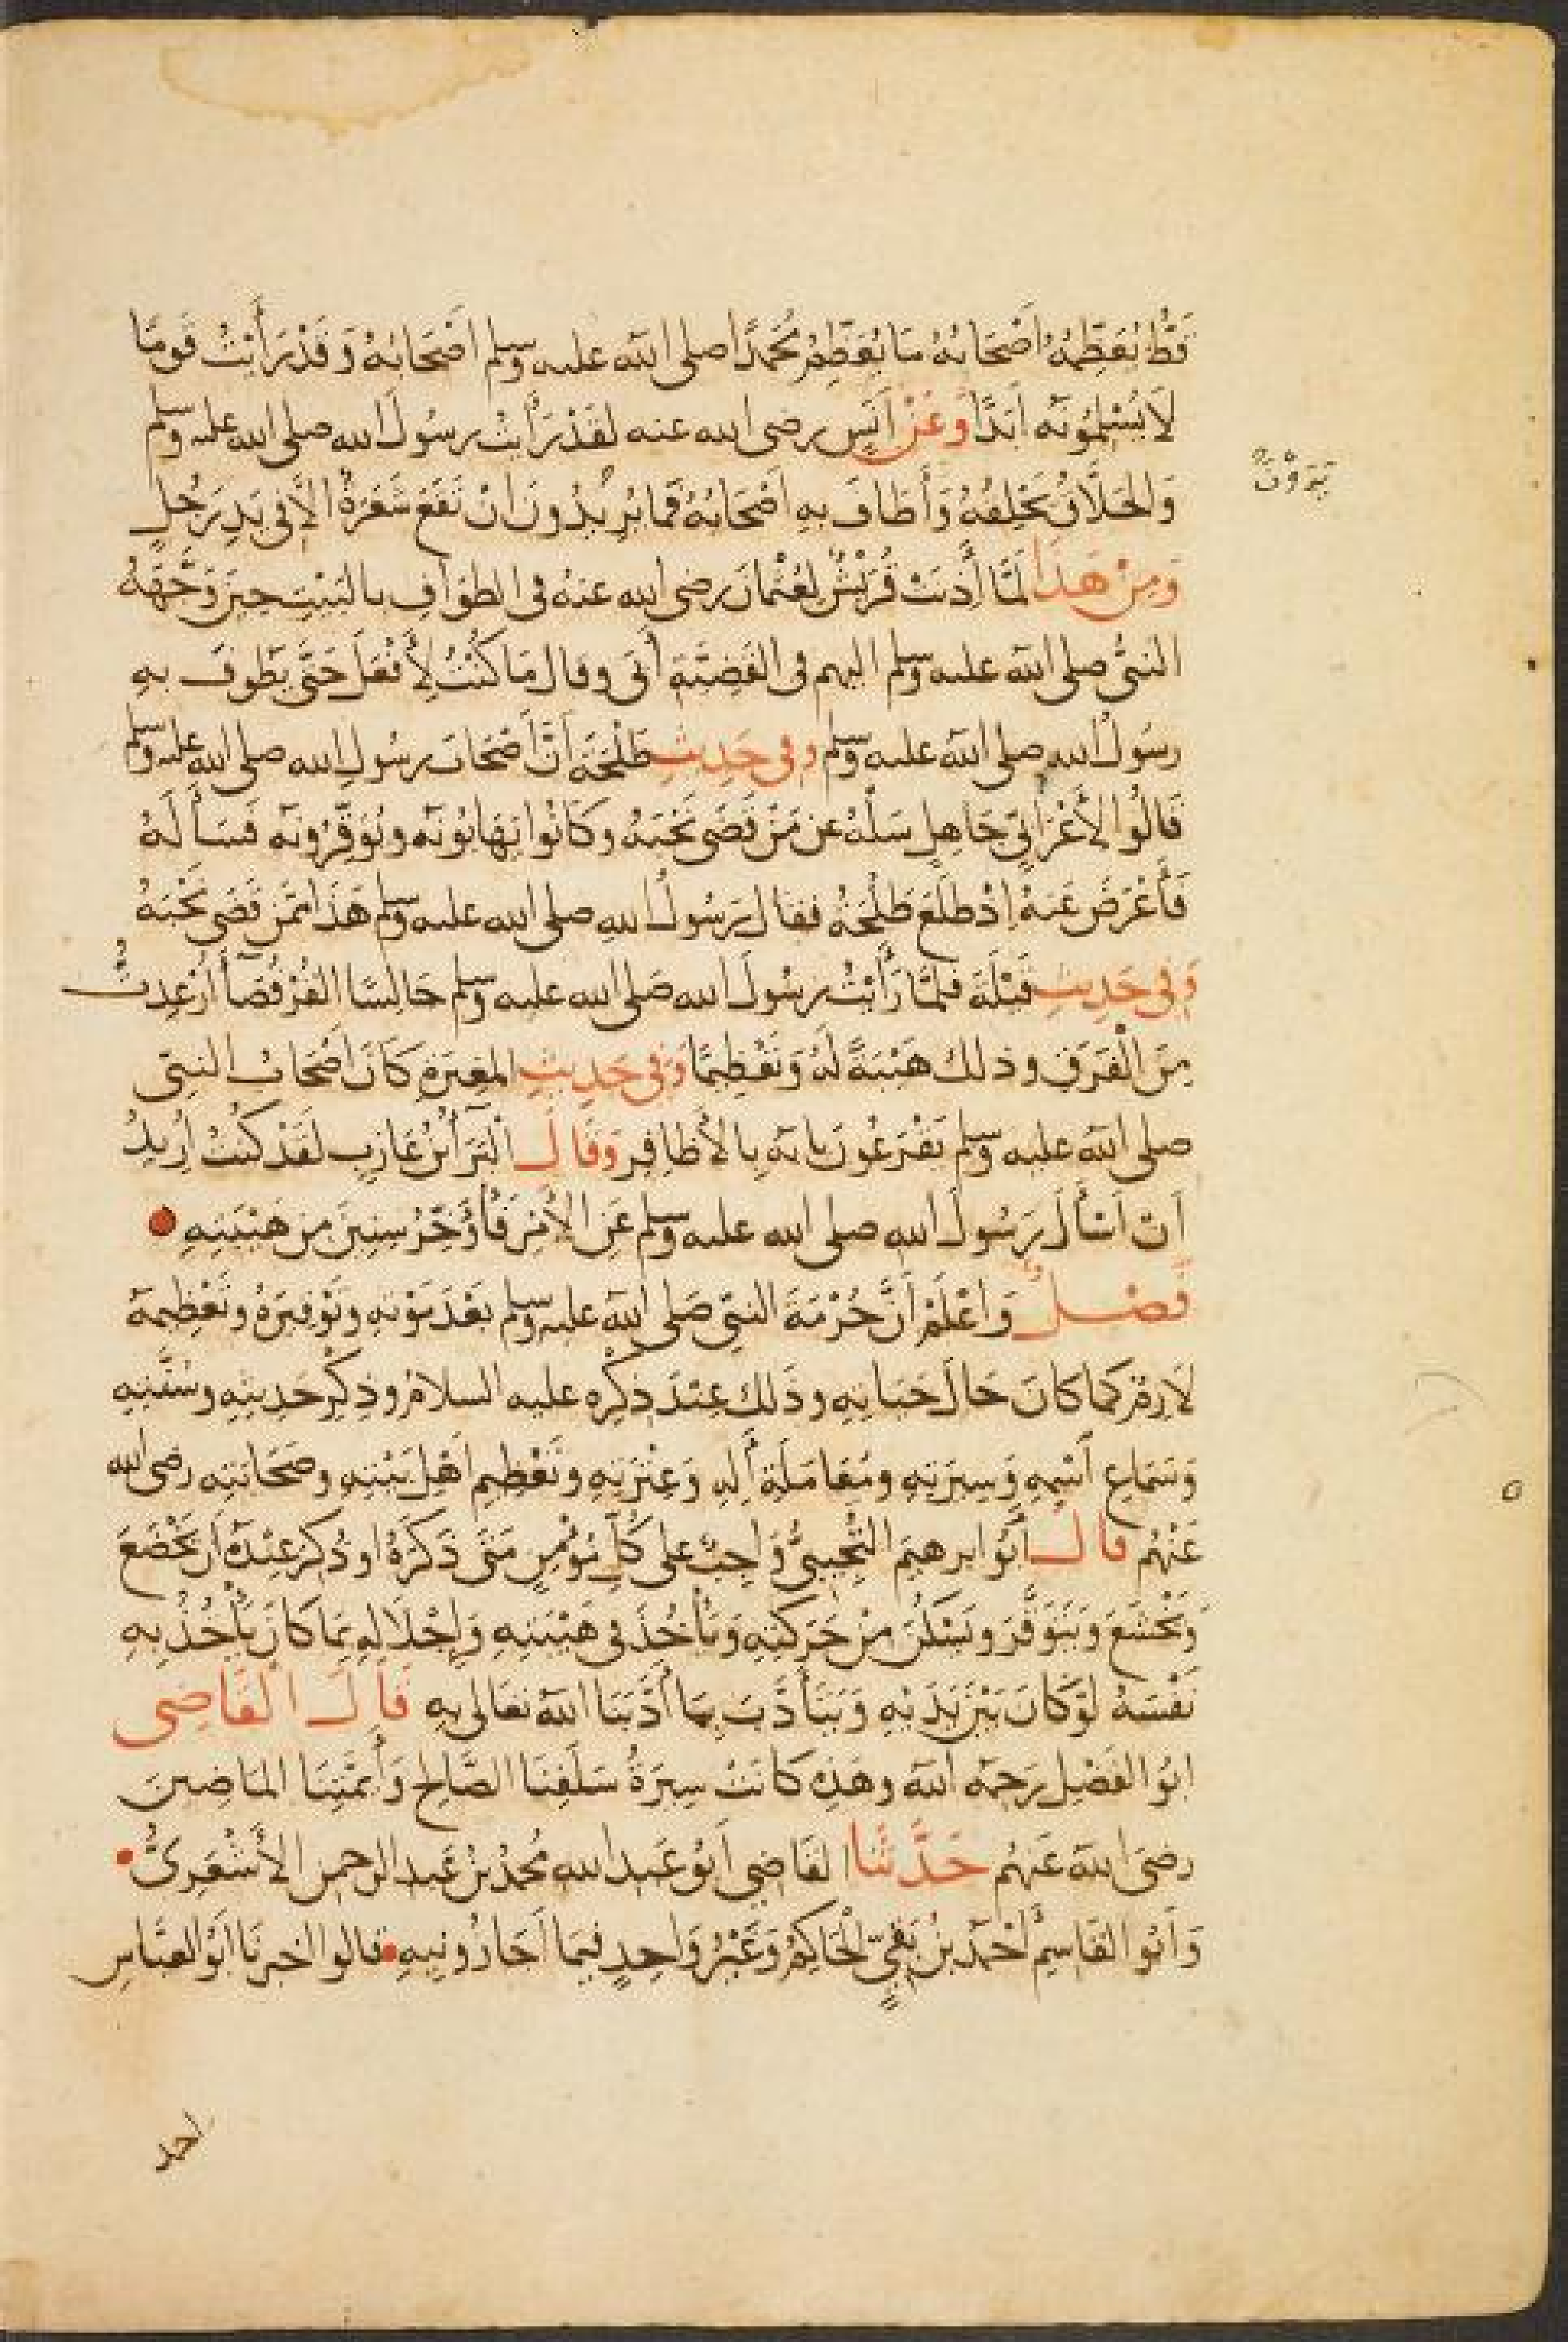 قَطُّ يُعَظِّمُهُ اَصْحَابُهُ مَا يُعَظِّمُ مُحَمَّدًا صلى الله عليه وسلم اَصْحَابُهُ وَقَدْ رَأَيْتُ قَومًا
لَا يُسْلِمُونَهُ اَبَدًا وَعَنْ اَنَسٍ رضى الله عنه لَقَدْ رَأَيْتُ رَسُولَ الله صلى الله عليه وسلم
وَالحَلَّاقُ يَحْلِقُهُ وَأَطَافَ بِهِ اَصْحَابُهُ فَمَا يُرِيْدُونَ اَنْ تَقَعَ شَعَرَةٌ اِلَّا فِي يَدِ رَجُلٍ
يَرَوْنَ
وَمِنْ هَذَا لَمَّا أَذِنَتْ قُرَيْشٌ لِعُثْمَانَ رضى الله عنهُ فى الطَوَافِ بالبَيْتِ حِينَ وَجَّهَهُ
النبىُّ صلى الله عليه وسلم اليهم فى القَضِيَّةِ أَبَى وقال مَا كُنْتُ لِأَفْعَلَ حَتَّى يَطُوفَ بِهِ
رسَولُ الله صلى الله عليه وسلم وفى حَدِيثِ طَلْحَةَ اَنَّ اَصْحَابَ رسُولِ الله صلى الله عليه وسلم
قَالُوا لِأَعْرَابِيٍّ جَاهِلٍ سَلْهُ عن مَنْ قَضَى نَحْبَهُ وكَانُوا يَهَابُونَه ويُوَقِّرُونَه فَسَأَلَهُ
فَأَعْرَضَ عَنهُ اِذْ طَلَعَ طَلْحَةُ فقال رَسُولُ اللهِ صلى الله عليه وسلم هَذَا مِمَّن قَضَى نَحْبَهُ
وَفى حَدِيثِ قَيْلَةَ فَلَمَّا رَأَيْتُ رسُولَ الله صَلى الله عليه وسلم جَالِسًا القُرْفُصَاَ أُرْعِدتُّ
مِنَ الْفَرَقِ وذلك هَيْبَةً لَهُ وَتَعْظِيمًا وَفى حَدِيثِ المغيرَةِ كَانَ اَصْحَابُ النبىّ
صلى الله عليه وسلم يَقْرَعُونَ بابَهُ بِالأَظافِرِ وَقَالَ الْبَرَآُ بْنُ عَازِبٍ لَقَدْ كُنْتُ اُرِيدُ
اَنْ اَسْأَلَ رَسُولَ الله صلى الله عليه وسلم عَنِ الاَمْرِ فَأُؤَخِّرُ سِنِينَ مِن هَيْبَتِهِ
فَصْلٌ وَاعْلَمْ اَنَّ حُرْمَةَ النبيّ صَلى الله عليه وسلم بَعْدَ مَوْتِهِ وتَوْقِيرَهُ وتَعْظِيمَهُ
لَازِمٌ كما كَانَ حَالَ حَيَاتِهِ وذَلك عِنْدَ ذِكْرِه عليه السلامُ وذِكْرِ حَدِيثِهِ وسُنَّتِهِ
وَسَمَاعِ اْسْمِهِ وَسِيرَتِهِ ومُعَامَلَةِ أَلِهِ وَعِتْرَتِهِ وتَعْظِيمِ اَهْلِ بَيْتِهِ وصَحَابَتِهِ رضى الله
عَنْهُم قَالَ أَبُو ابرهيم التُّجِيبىُّ وَاجِبٌ على كُلّ مُؤْمِنٍ مَتَى ذَكَرَهُ او ذُكِرَ عِنْدَهُ اَن يَخْضَعَ
وَيَخْشَعَ وَيَتَوَقَّرَ ويَسْكُنَ مِنْ حَرَكَتِهِ وَيَأْخُذَ فى هَيْبَتِهِ وَاِجْلَالِهِ بِمَا كَانَ يَأْخُذُ بِهِ
نَفْسَهُ لَوْ كَانَ بَيْنَ يَدَيْهِ وَيَتَأَدَّبَ بِمَا أَدَّبَنَا اللهُ تعَالى بِهِ قَالَ الْقَاضِى
ابُو الفَضْلِ رَحِمَهُ الله وهَذِهِ كَانَتْ سِيرَةُ سَلَفِنَا الصَّالِحِ وَأَئِمَّتِنَا المَاضِينَ
رضىَ الله عَنهُم حَدَّثَنَا القَاضِى اَبُو عَبدِ الله مُحَمَّدُ بْنُ عَبدِ الرحمنِ الأَشْعَرِىُّ
وَاَبُو القَاسِمِ اَحْمَدُ بنُ بَقِيٍّ الْحَاكِمُ وَغَيْرُ وَاحِدٍ فِيمَا اَجَازُونِيهِ قالوا اخبرنَا اَبُو العَبَّاسِ
احمد